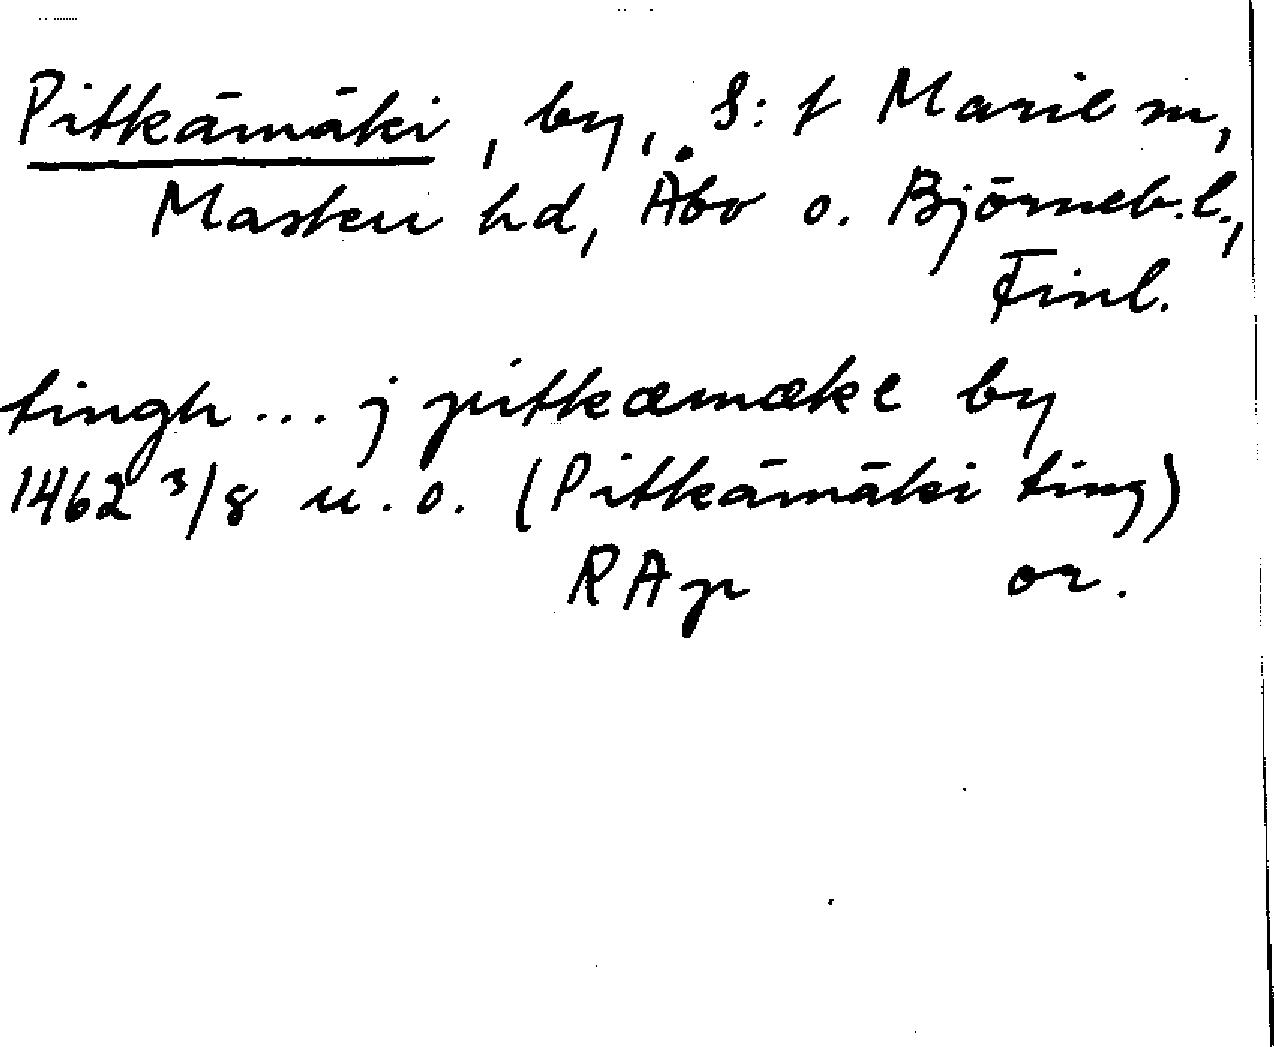 Pitkämäki, by, S:t Marie sn,
Masku hd, Åbo o. Björneb.l.,
Finl.
tingh ... j pitkæmæke by
1462 3/8 u.o. (Pitkämäki ting)
RAp or.